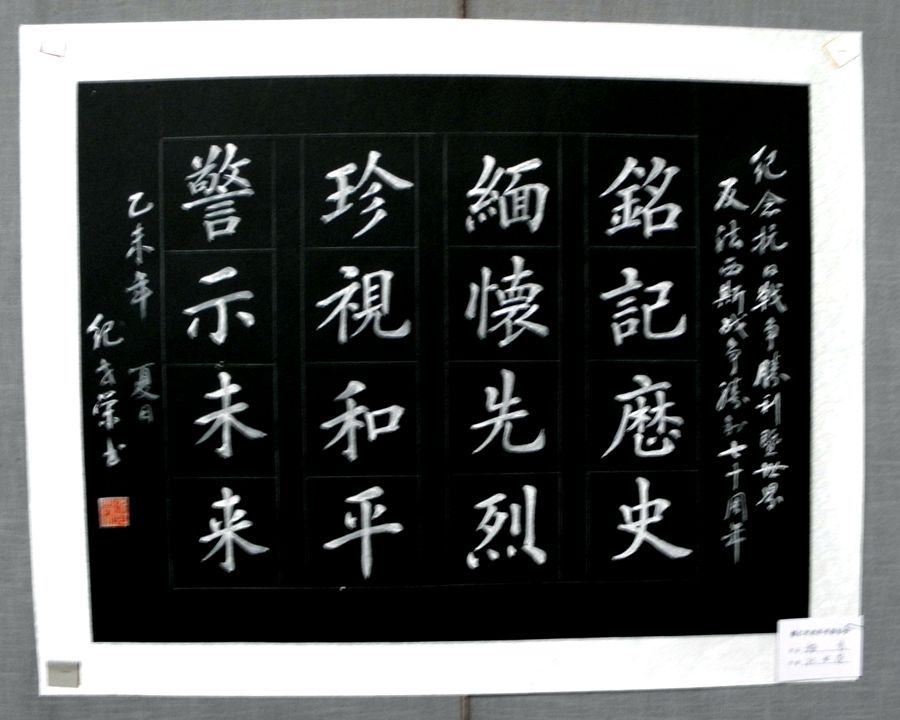 纪念抗日戰争勝利暨世界
反法西斯战争勝利七十周年
銘記歷史
緬懷先烈
珍視和平
警示未来
乙未年 夏日
纪 荣书